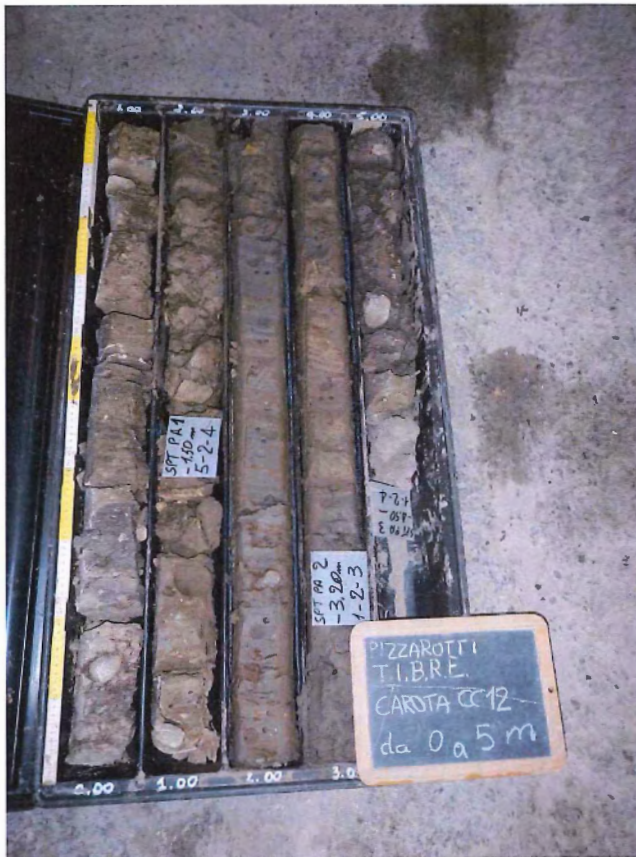 1.00 2.00 3.00 4.00 5.00
SPT PA1
-1.50m
5-2-4
SPT PA 2
-3,20m
1-2-3
SPT PA 3
-4.50
1-2-4
PIZZAROTTI
T.I.B.R.E.
CAROTA CC12
da 0 a 5 m
0.00 1.00 2.00 3.0